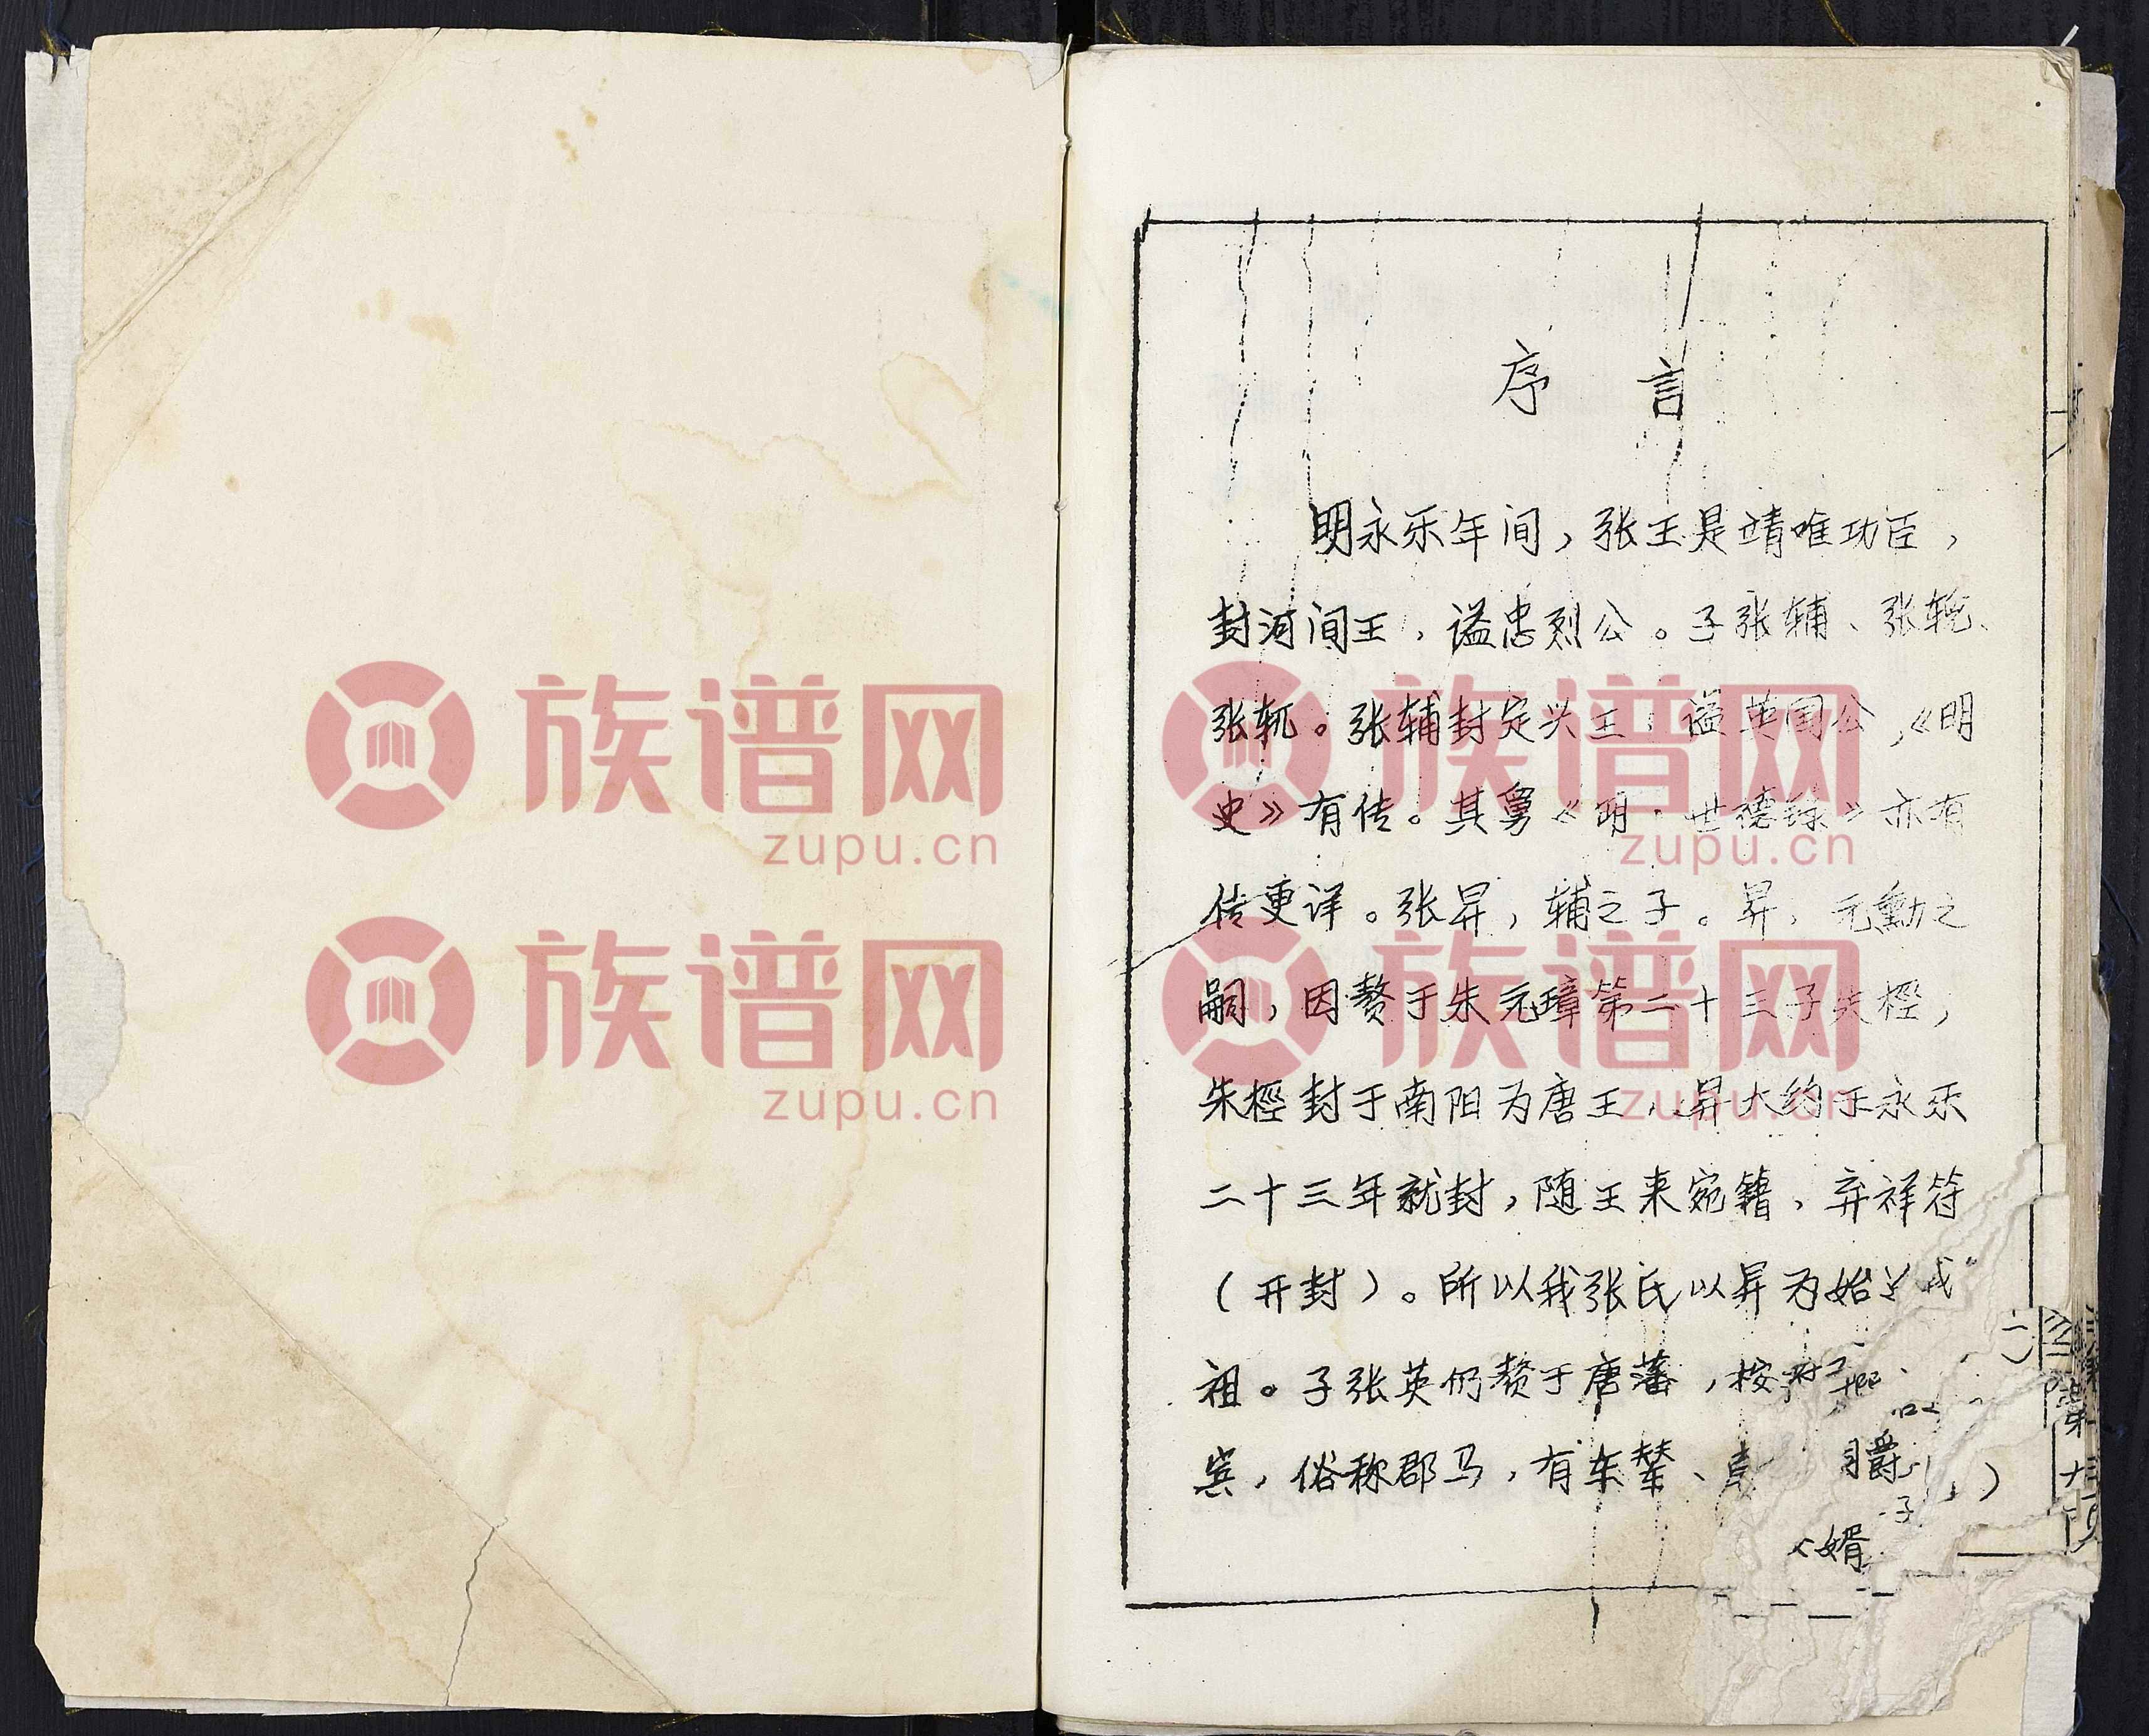 族谱网
zupu.cn
族谱网
zupu.cn
序 言
明永乐年间，张玉是靖唯功臣，
封河间王，谥忠烈公。子张辅、张輗、
张軏。张辅封定兴王，谥英国公，《明
史》有传。其舅《明·世德録》亦有
传更详。张昇，辅之子。昇，元勳之
嗣，因赘于朱元璋第二十三子朱桱，
朱桱封于南阳为唐王，昇大约于永乐
二十三年就封，随王来宛籍，弃祥符
（开封）。所以我张氏以昇为始
祖。子张英仍赘于唐藩，按
宾，俗称郡马，有东辇、
爵
婿
族谱网
zupu.cn
族谱网
zupu.cn